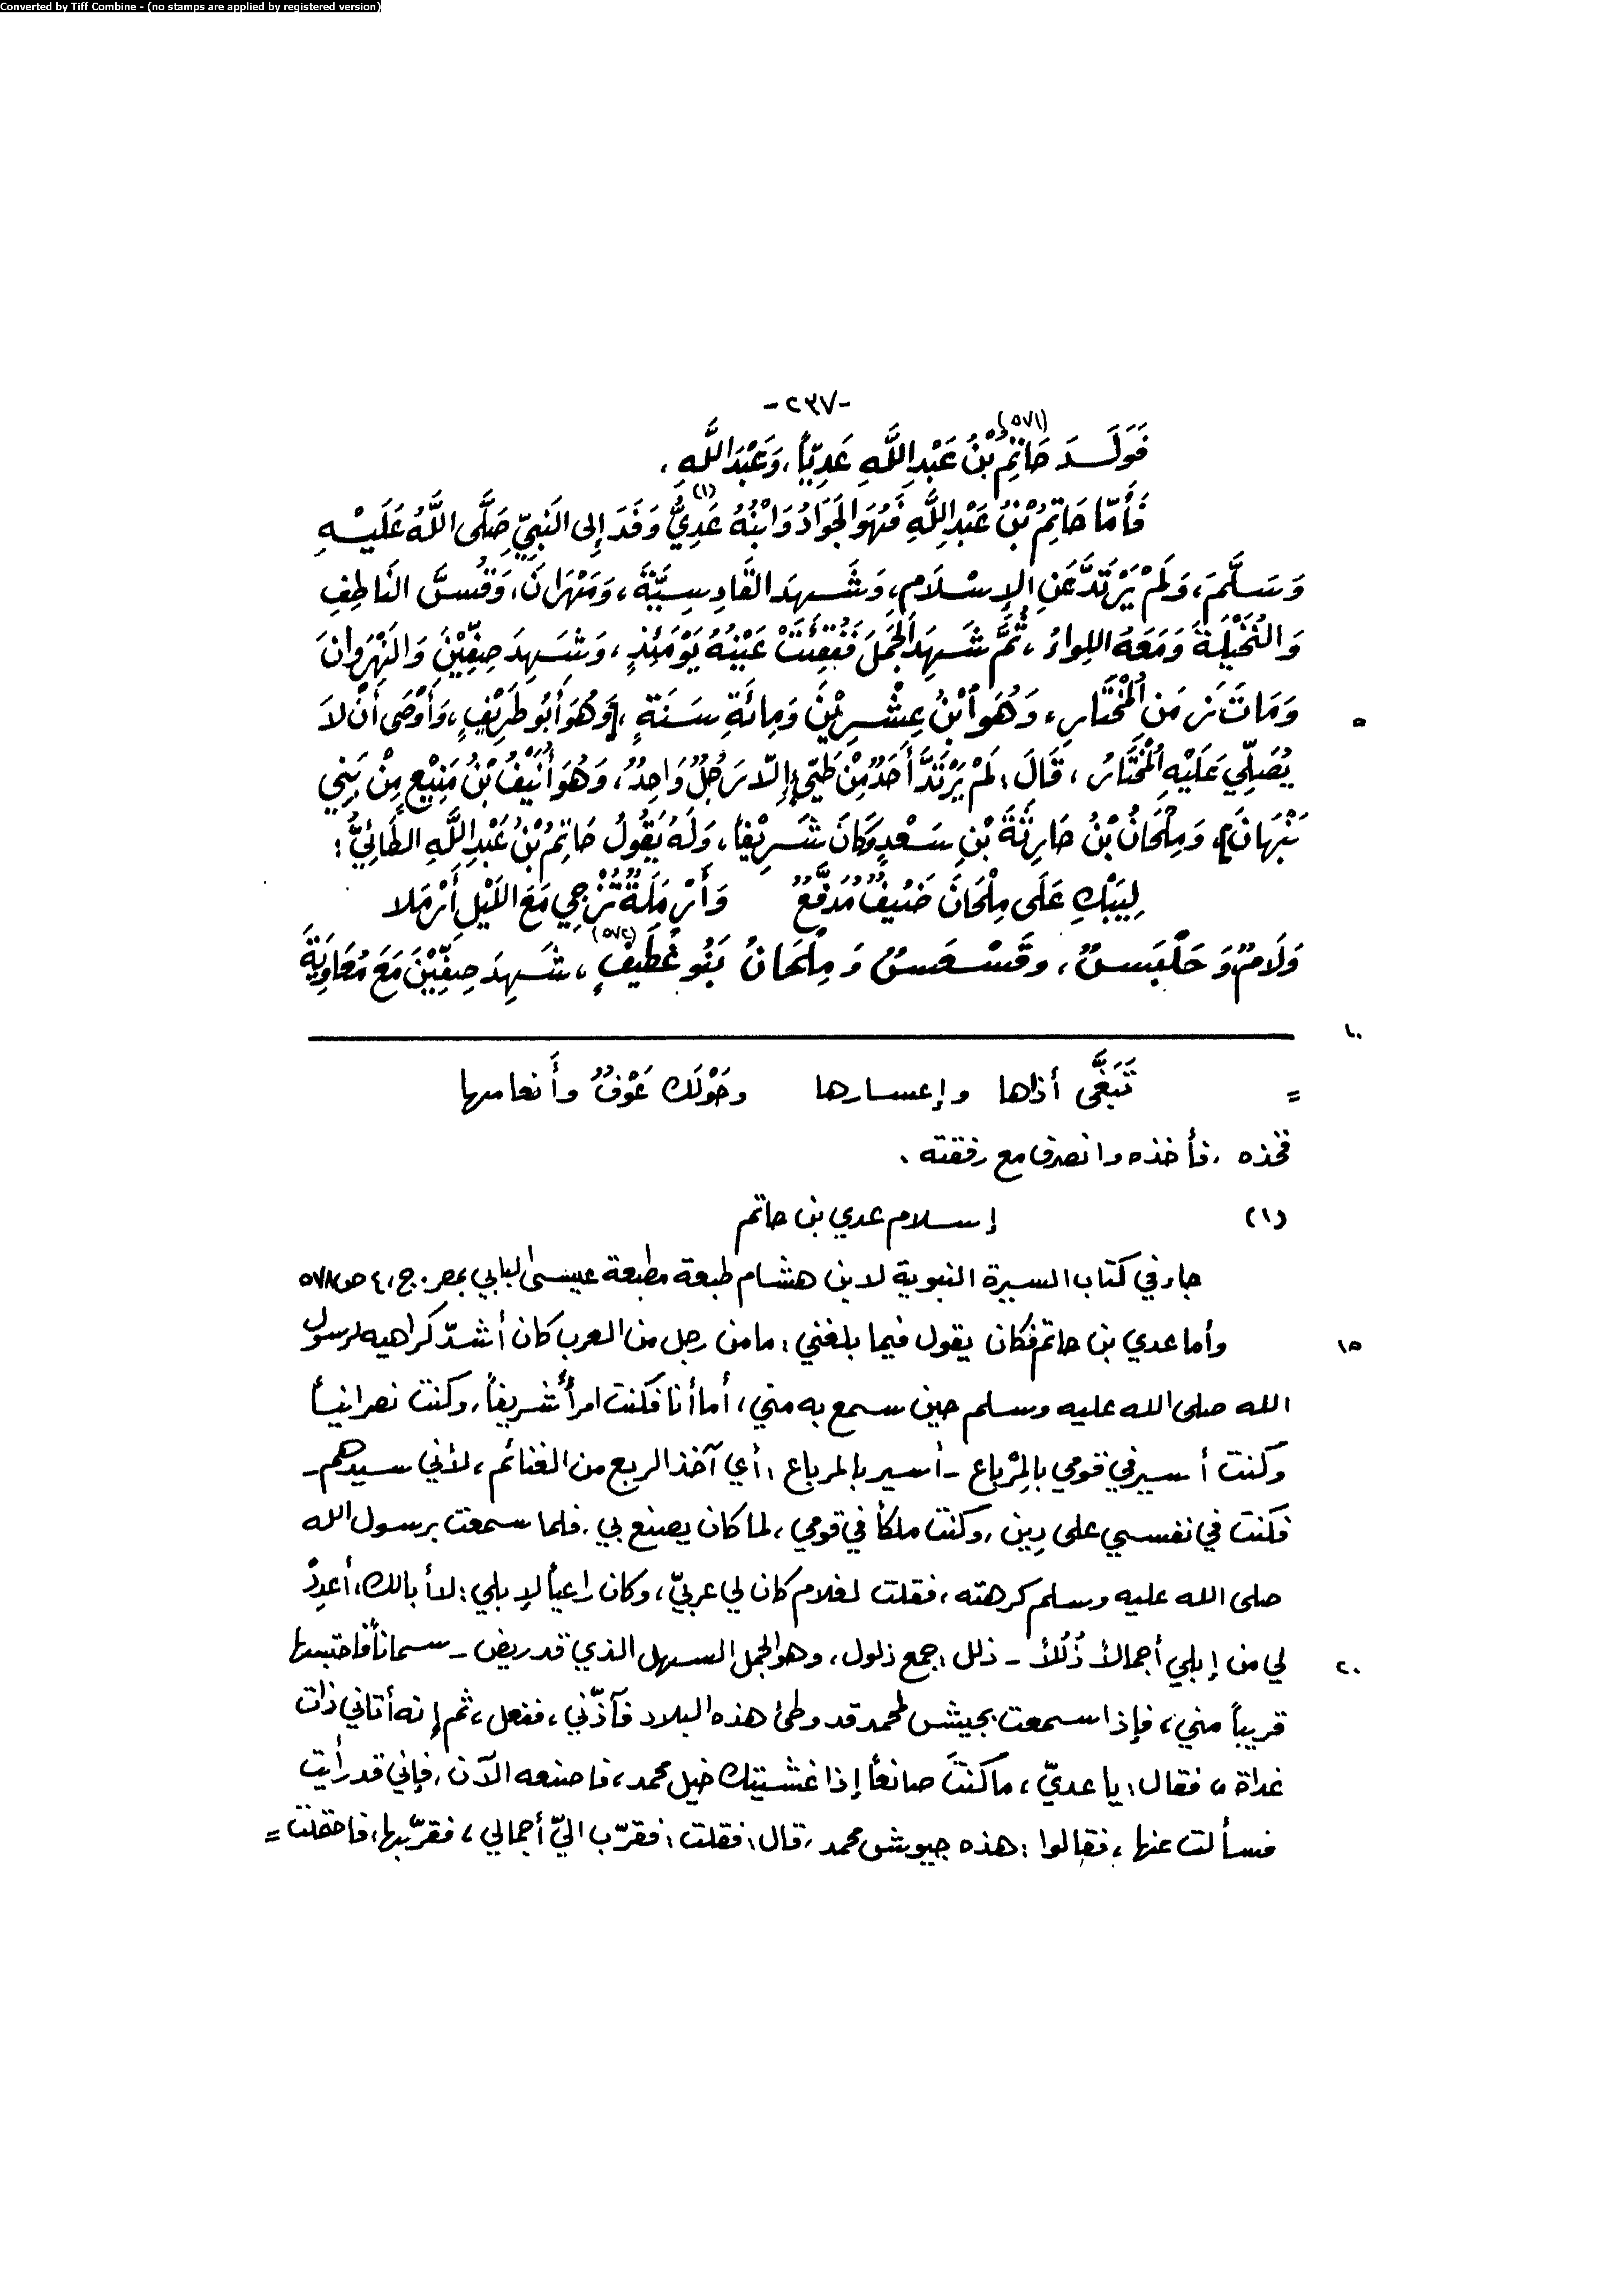 Converted by Tiff Combine - (no stamps are applied by registered version)
-٢٣٧-
(٥٧١)
فَوَلَدَ حَاتِمُ بْنُ عَبْدِاللَّهِ عَدِيّاً، وَعَبْدَاللَّهِ،
فَأَمّا حَاتِمُ بْنُ عَبْدِاللَّهِ فَهُوَ الجَوَادُ وَابْنُهُ عَدِيُّ (١) وَفَدَ إِلى النَبِيِّ صَلَّى اللَّهُ عَلَيْهِ
وَسَلَّمَ، وَلَمْ يَرْتَدَّ عَنِ الإِسْلَامِ، وَشَهِدَ القَادِسِيَّةَ، وَمِهْرَانَ، وَقُسَّ النَاطِفِ
وَالنُخَيْلَةَ وَمَعَهُ اللِواءُ، ثُمَّ شَهِدَ الجَمَلَ فَفُقِئَتْ عَيْنُهُ يَوْمَئِذٍ، وَشَهِدَ صِفِّيْنَ وَالنَهْرَوانَ
٥ وَمَاتَ زَمَنَ المُخْتَارِ، وَهُوَ ابْنُ عِشْرِيْنَ وَمِائَةِ سَنَةٍ، [وَهُوَ أَبُو طَرِيْفٍ، وَأَوْصَى أَنْ لاَ
يُصَلِّي عَلَيْهِ المُخْتَارُ، قَالَ: لَمْ يَرْتَدَّ أَحَدٌ مِنْ طَيِّءٍ إِلّا رَجُلٌ وَاحِدٌ، وَهُوَ أُنَيْفُ بْنُ مَنِيْعٍ مِنْ بَنِي
نَبْهَانَ]، وَمِلْحَانُ بْنُ حَارِثَةَ بْنِ سَعْدٍ وَكَانَ شَرِيْفاً، وَلَهُ يَقُولُ حَاتِمُ بْنُ عَبْدِاللَّهِ الطَائِيُّ:
لِيَبْكِ عَلَى مِلْحَانَ ضَيْفٌ مُدَفَّعٌ وَأَرْمَلَةٌ تُزْجِي مَعَ اللَيْلِ أَرْمَلا
وَلَامٌ وَحَلْبَسٌ، وَقَسْعَسٌ وَمِلْحَانُ بَنُو غُطَيْفٍ (٥٧٢)، شَهِدَ صِفِّيْنَ مَعَ مُعَاوِيَةَ
١٠
= تَبَغَّى أذاها وإعسارها وحَوْلَك عَوْفٌ وأَنعامها
فخذه، فأخذه وانصرف مع رفقته.
(١) إسلام عدي بن حاتم
جاء في كتاب السيرة النبوية لابن هشام طبعة مطبعة عيسى البابي بمصر. ج، ٤ ص، ٥٧٨
١٥ وأما عدي بن حاتم فكان يقول فيما بلغني: ما من رجل من العرب كان أشدّ كراهيه لرسول
الله صلى الله عليه وسلم حين سمع به مني، أما أنا فكنت امرأً شريفاً، وكنت نصرانياً
وكنت أسير في قومي بالمِرْباع -أسير بالمرباع: أي آخذ الربع من الغنائم، لأني سيدهم-
فكنت في نفسي على دِين، وكنت ملكاً في قومي، لما كان يصنع بي. فلما سمعت برسول الله
صلى الله عليه وسلم كرهته، فقلت لغلام كان لي عربيّ، وكان راعياً لإبلي: لا أبالك، أعدِدْ
٢٠ لي من إبلي أجمالاً ذُلُلاً - ذلل: جمع ذلول، وهو الجمل السهل الذي قد ريض - سماناً فاحتبسها
قريباً مني، فإذا سمعت بجيش لمحمد قد وطئ هذه البلاد فآذّني، ففعل، ثم إنه أتاني ذات
غداة، فقال: يا عديّ، ما كنتَ صانعاً إذا غشيتك خيل محمد، فاصنعه الآن، فإني قد رأيت
فسألت عنها، فقالوا: هذه جيوش محمد، قال: فقلت: فقرّب اليّ أجمالي، فقرّبها، فاحتملت =